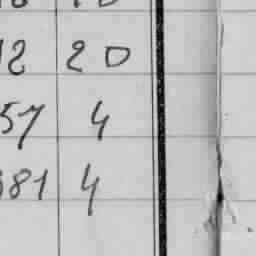 12 20
57 4
681 4